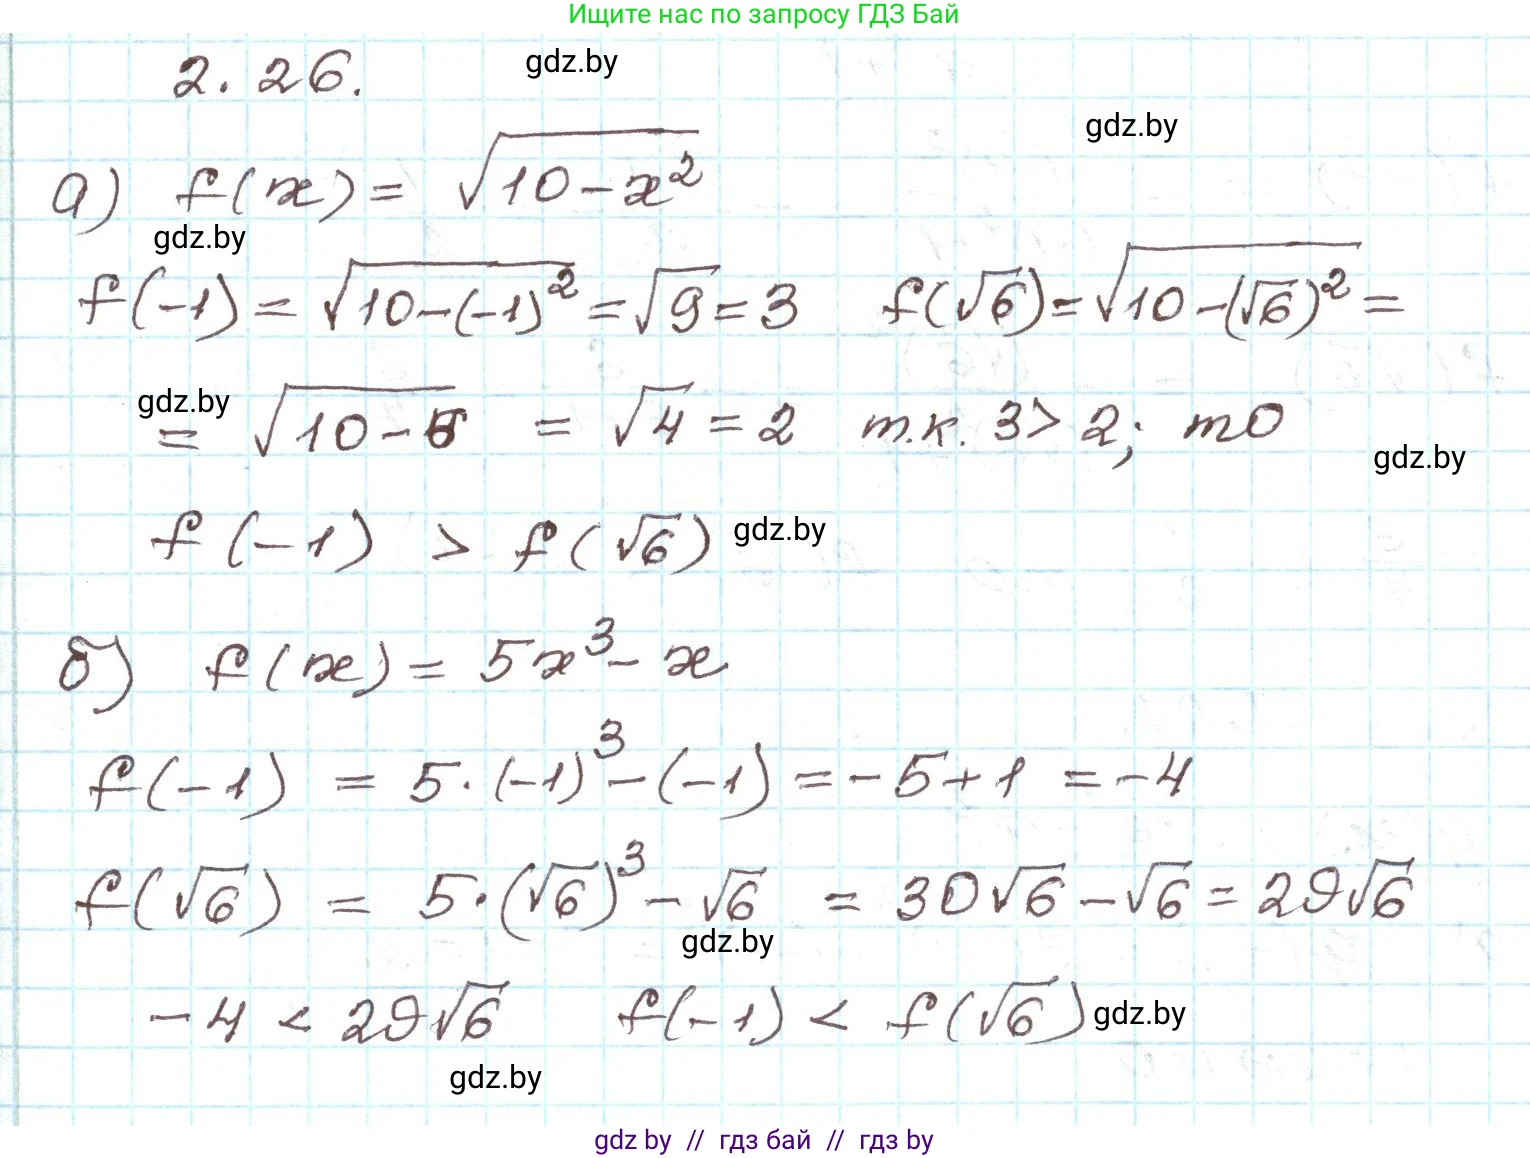 Ищите нас по запросу ГДЗ Бай
2.26.
gdz.by
gdz.by
а) f(x) = √(10-x²)
gdz.by
f(-1) = √(10-(-1)²) = √9 = 3 f(√6) = √(10-(√6)²) =
gdz.by
= √(10-6) = √4 = 2 т.к. 3 > 2; то
gdz.by
f(-1) > f(√6)
gdz.by
б) f(x) = 5x³ - x
f(-1) = 5·(-1)³ - (-1) = -5+1 = -4
f(√6) = 5·(√6)³ - √6 = 30√6 - √6 = 29√6
gdz.by
-4 < 29√6 f(-1) < f(√6)
gdz.by
gdz.by
gdz by // гдз бай // гдз by